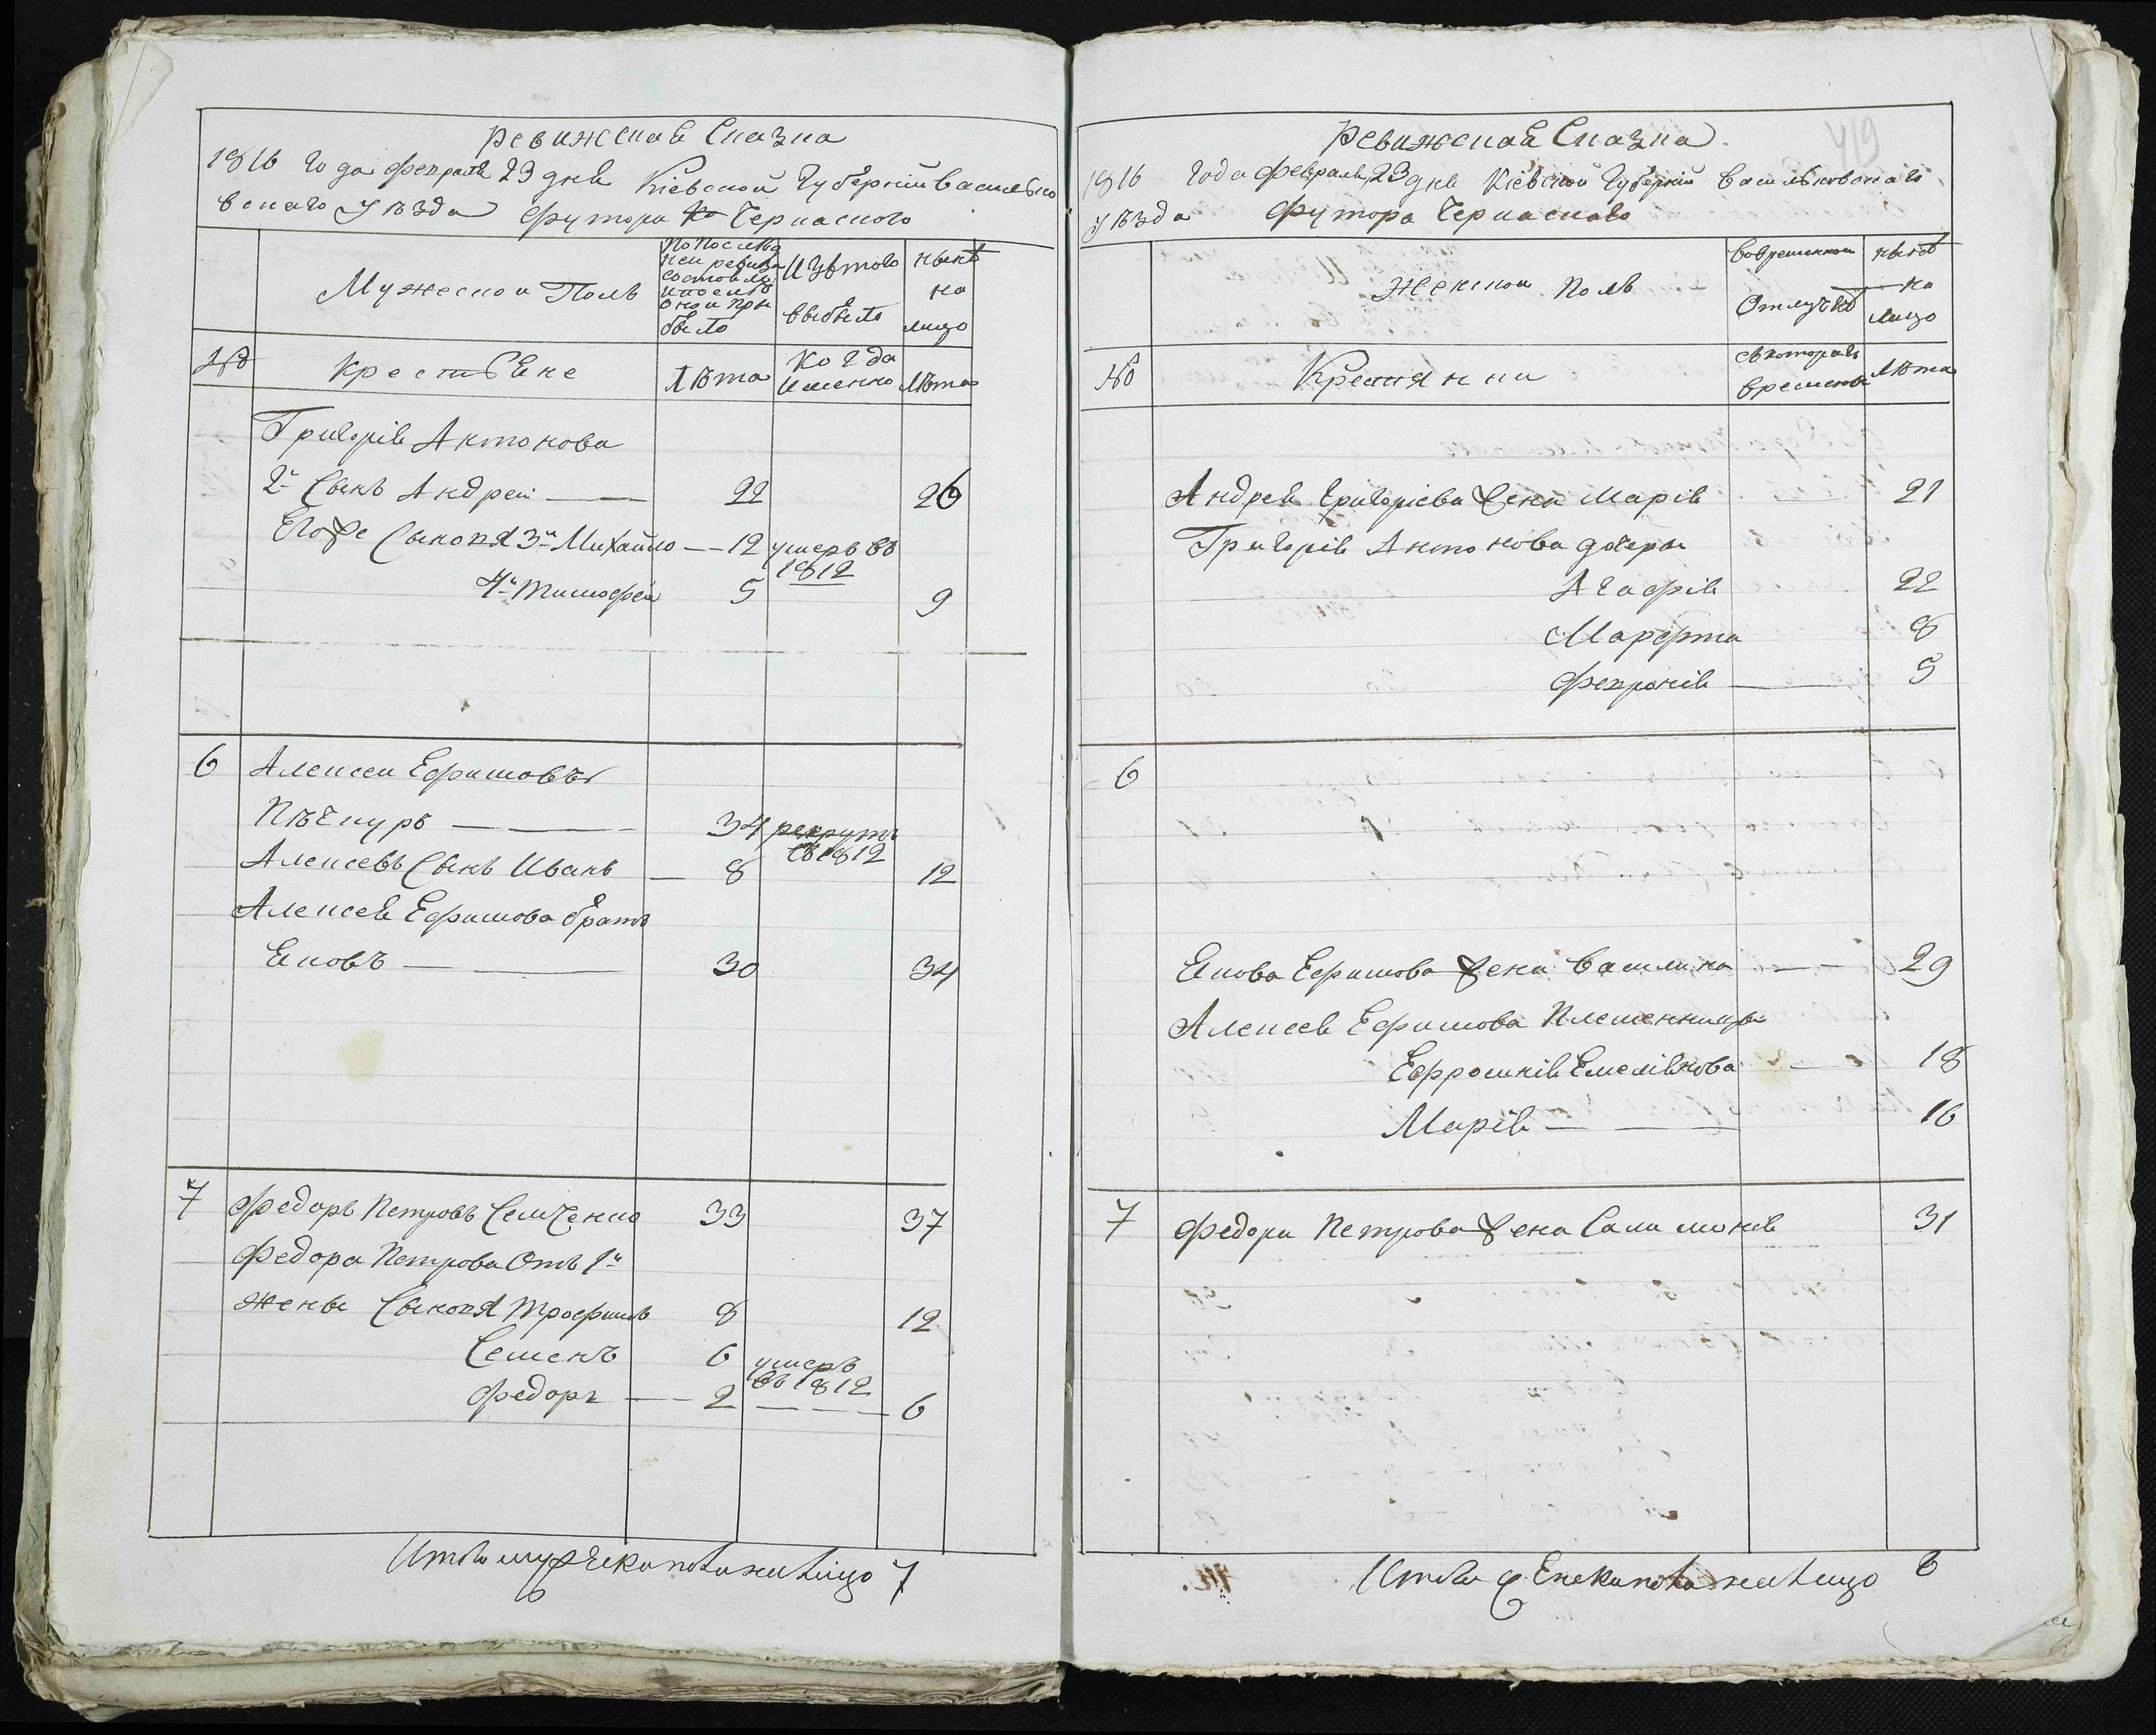 Ревижская Сказка
1816 Года февраля 23 дня Кіевской Губерніи Василько
вскаго Уѣзда Футора Черкаского
Мужеской Полъ
По последней ревизіи состояло и после оной прибыло
Изъ того выбыло
нынѣ на лицо
№
Крестьяне
Лѣта
Когда именно
Лѣта
Григорія Антонова
2й Сынъ Андрей 22 26
Его же Сыновья 3й Михайло 12 умеръ въ 1812
4й Тимофей 5 9
6 Алексей Ефимовъ
34 рекрутъ въ 1812
Алексевъ Сынъ Иванъ 8 12
Алексея Ефимова братъ
Яковъ 30 34
7 Федоръ Петровъ Семченко 33 37
Федора Петрова Отъ 1й
жены Сыновья Трофимъ 8 12
Семенъ 6 умеръ въ 1812
Федоръ 2 6
Итого мужеска пола на лицо 7
419
Ревижская Сказка
1816 Года Февраля 23 дня Кіевской Губерніи Васильковскаго
Уѣзда Футора Черкаскаго
Женской Полъ
Во временной Отлучкѣ
нынѣ на лицо
№
Крестянки
съ котораго времени
Лѣта
Андрея Григоріева жена Марія 21
Григорія Антонова дочери
Агафія 22
Марфта 8
Февронія 5
6
Якова Ефимова жена Василина 29
Алексея Ефимова Племенницы
Ефросинія Емеліянова 18
Марія 16
7 Федора Петрова жена Саламонія 31
Итого женска пола на лицо 6